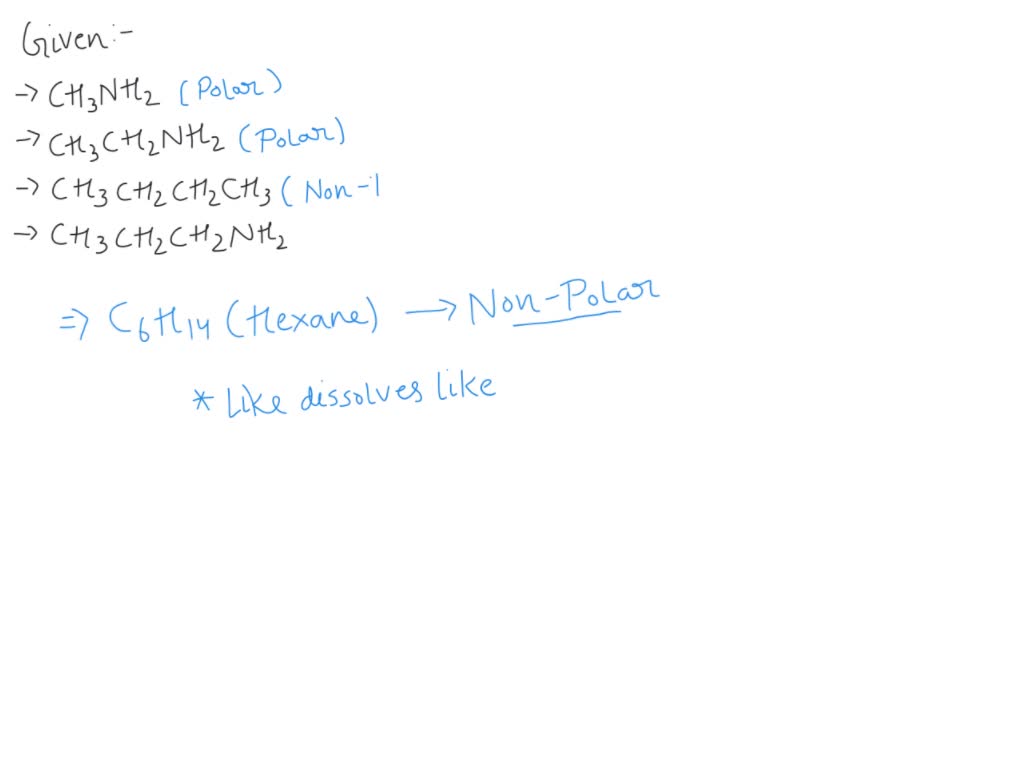 Given:-
→ CH3NH2 (Polar)
→ CH3CH2NH2 (Polar)
→ CH3CH2CH2CH3 (Non-l
→ CH3CH2CH2NH2
⇒ C6H14 (Hexane) → Non-Polar
* Like dissolves like